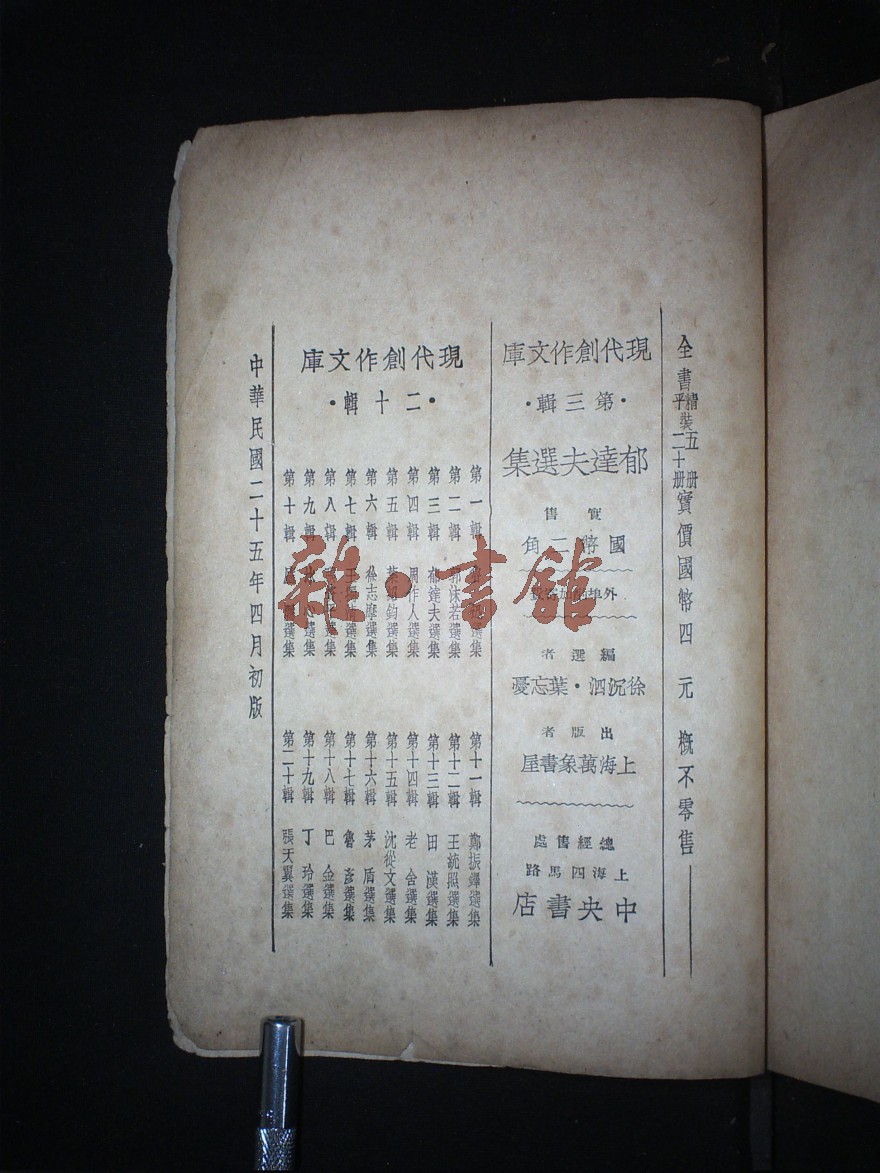 全書精裝五册平裝二十册實價國幣四元 概不零售
現代創作文庫
·第三輯·
郁達夫選集
實售
國幣二角
外埠
編選者
徐沉泗·葉忘憂
出版者
上海萬象書屋
總經售處
上海四馬路
中央書店
現代創作文庫
·二十輯·
第一輯 選集
第二輯 郭沫若選集
第三輯 郁達夫選集
第四輯 周作人選集
第五輯 葉紹鈞選集
第六輯 徐志摩選集
第七輯 王 選集
第八輯 選集
第九輯 選集
第十輯 選集
第十一輯 鄭振鐸選集
第十二輯 王統照選集
第十三輯 田漢選集
第十四輯 老舍選集
第十五輯 沈從文選集
第十六輯 茅盾選集
第十七輯 魯彥選集
第十八輯 巴金選集
第十九輯 丁玲選集
第二十輯 張天翼選集
中華民國二十五年四月初版
雜·書館